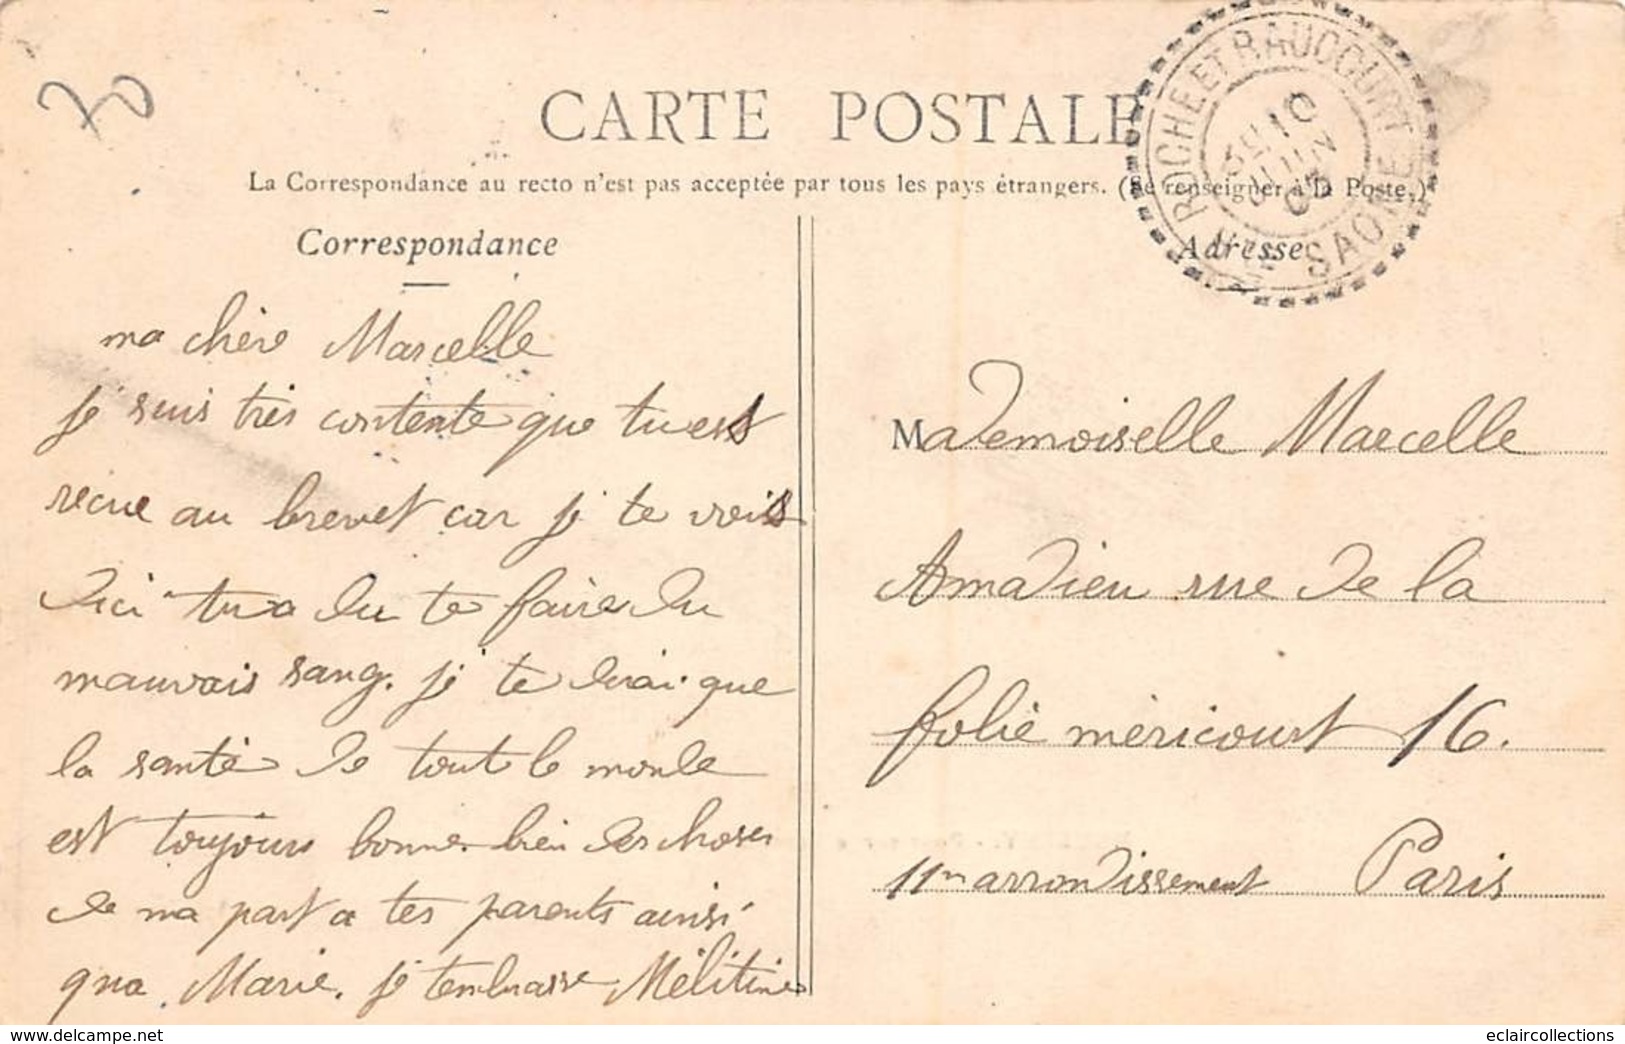 70
CARTE POSTALE
La Correspondance au recto n'est pas acceptée par tous les pays étrangers. (Se renseigner à la Poste.)
ROCHE ET RAUCOURT
10
JUIN
SAONE
Correspondance
ma chère Marcelle
je suis très contente que tu es
recue au brevet car je te vois
d'ici tu a du te faire du
mauvais sang. je te dirai que
la santé de tout le monde
est toujours bonne. bien des choses
de ma part a tes parents ainsi
qua Marie. je t'embrasse Mélitine
Adresse
Mademoiselle Marcelle
Amadieu rue de la
folie méricourt 16.
11m arrondissement Paris
www.delcampe.net
eclaircollections